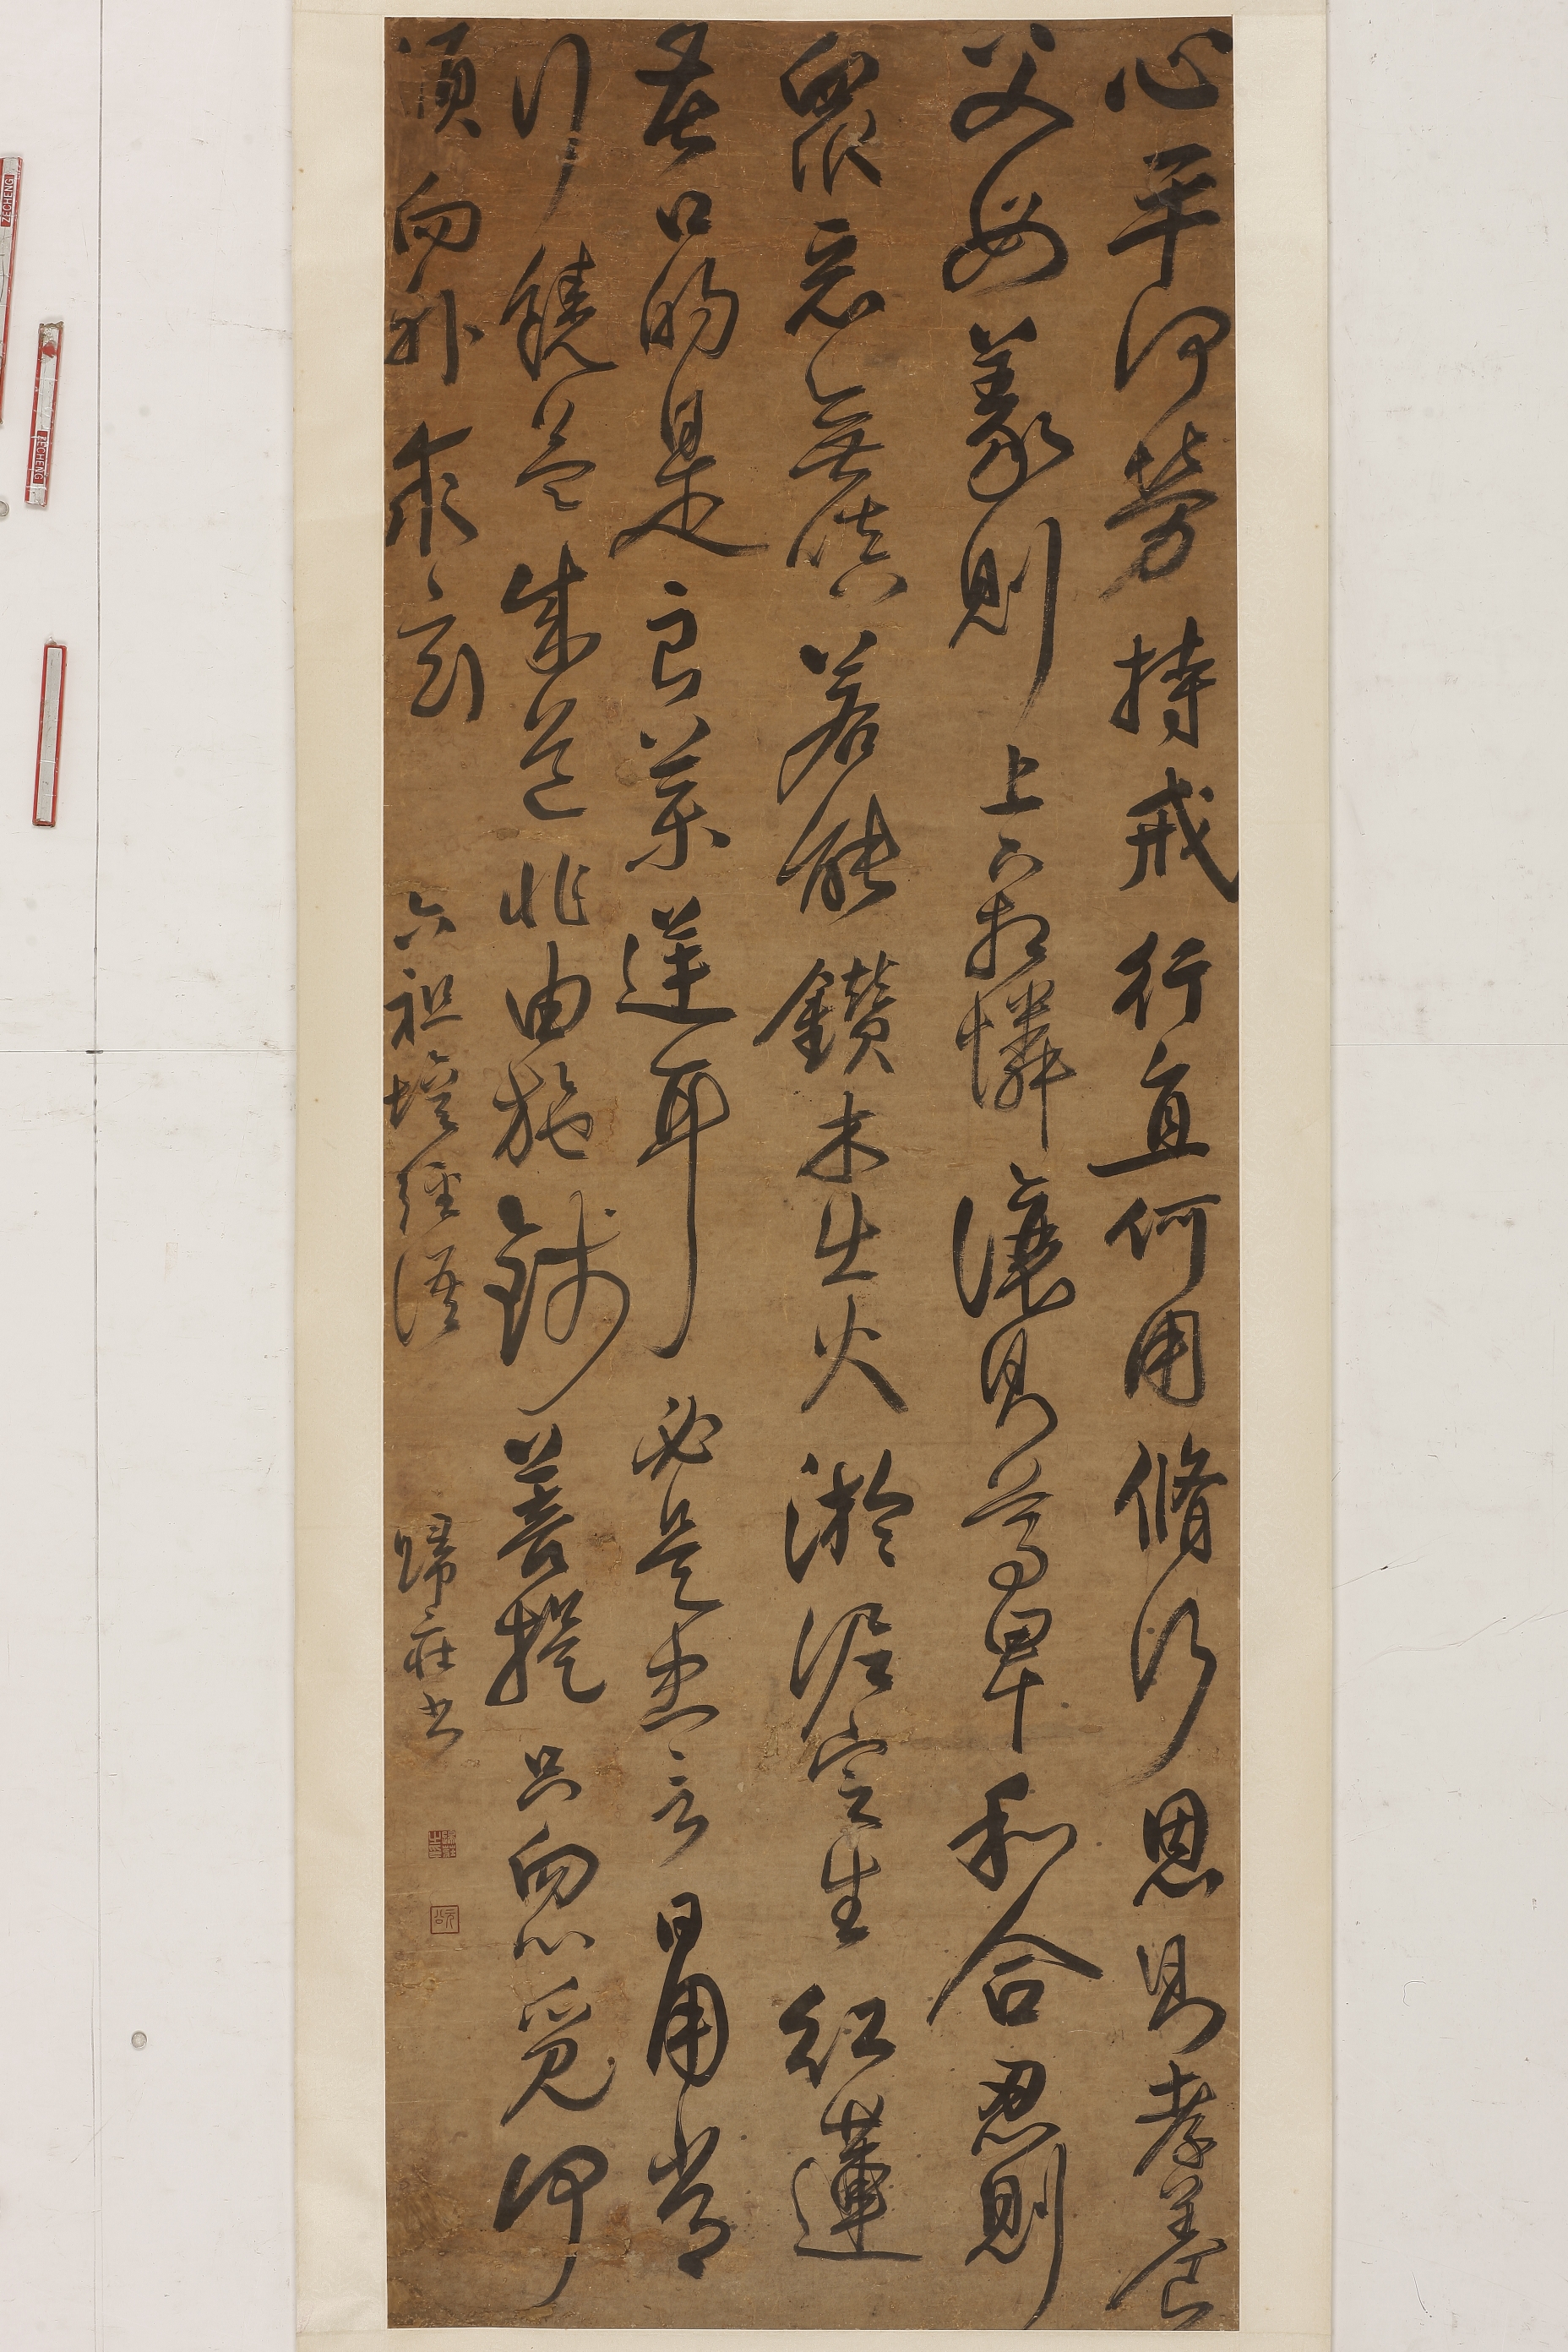 心平何勞持戒行直何用脩行恩則孝養
父母義則上下相憐讓則尊卑和合忍則
眾惡無嗔若能鑽木出火淤泥定生紅蓮
苦口的是良藥逆耳必是忠言日用常
行饒益成道非由施錢菩提只向心覓何
須向外求玄 六祖壇經語 歸莊書